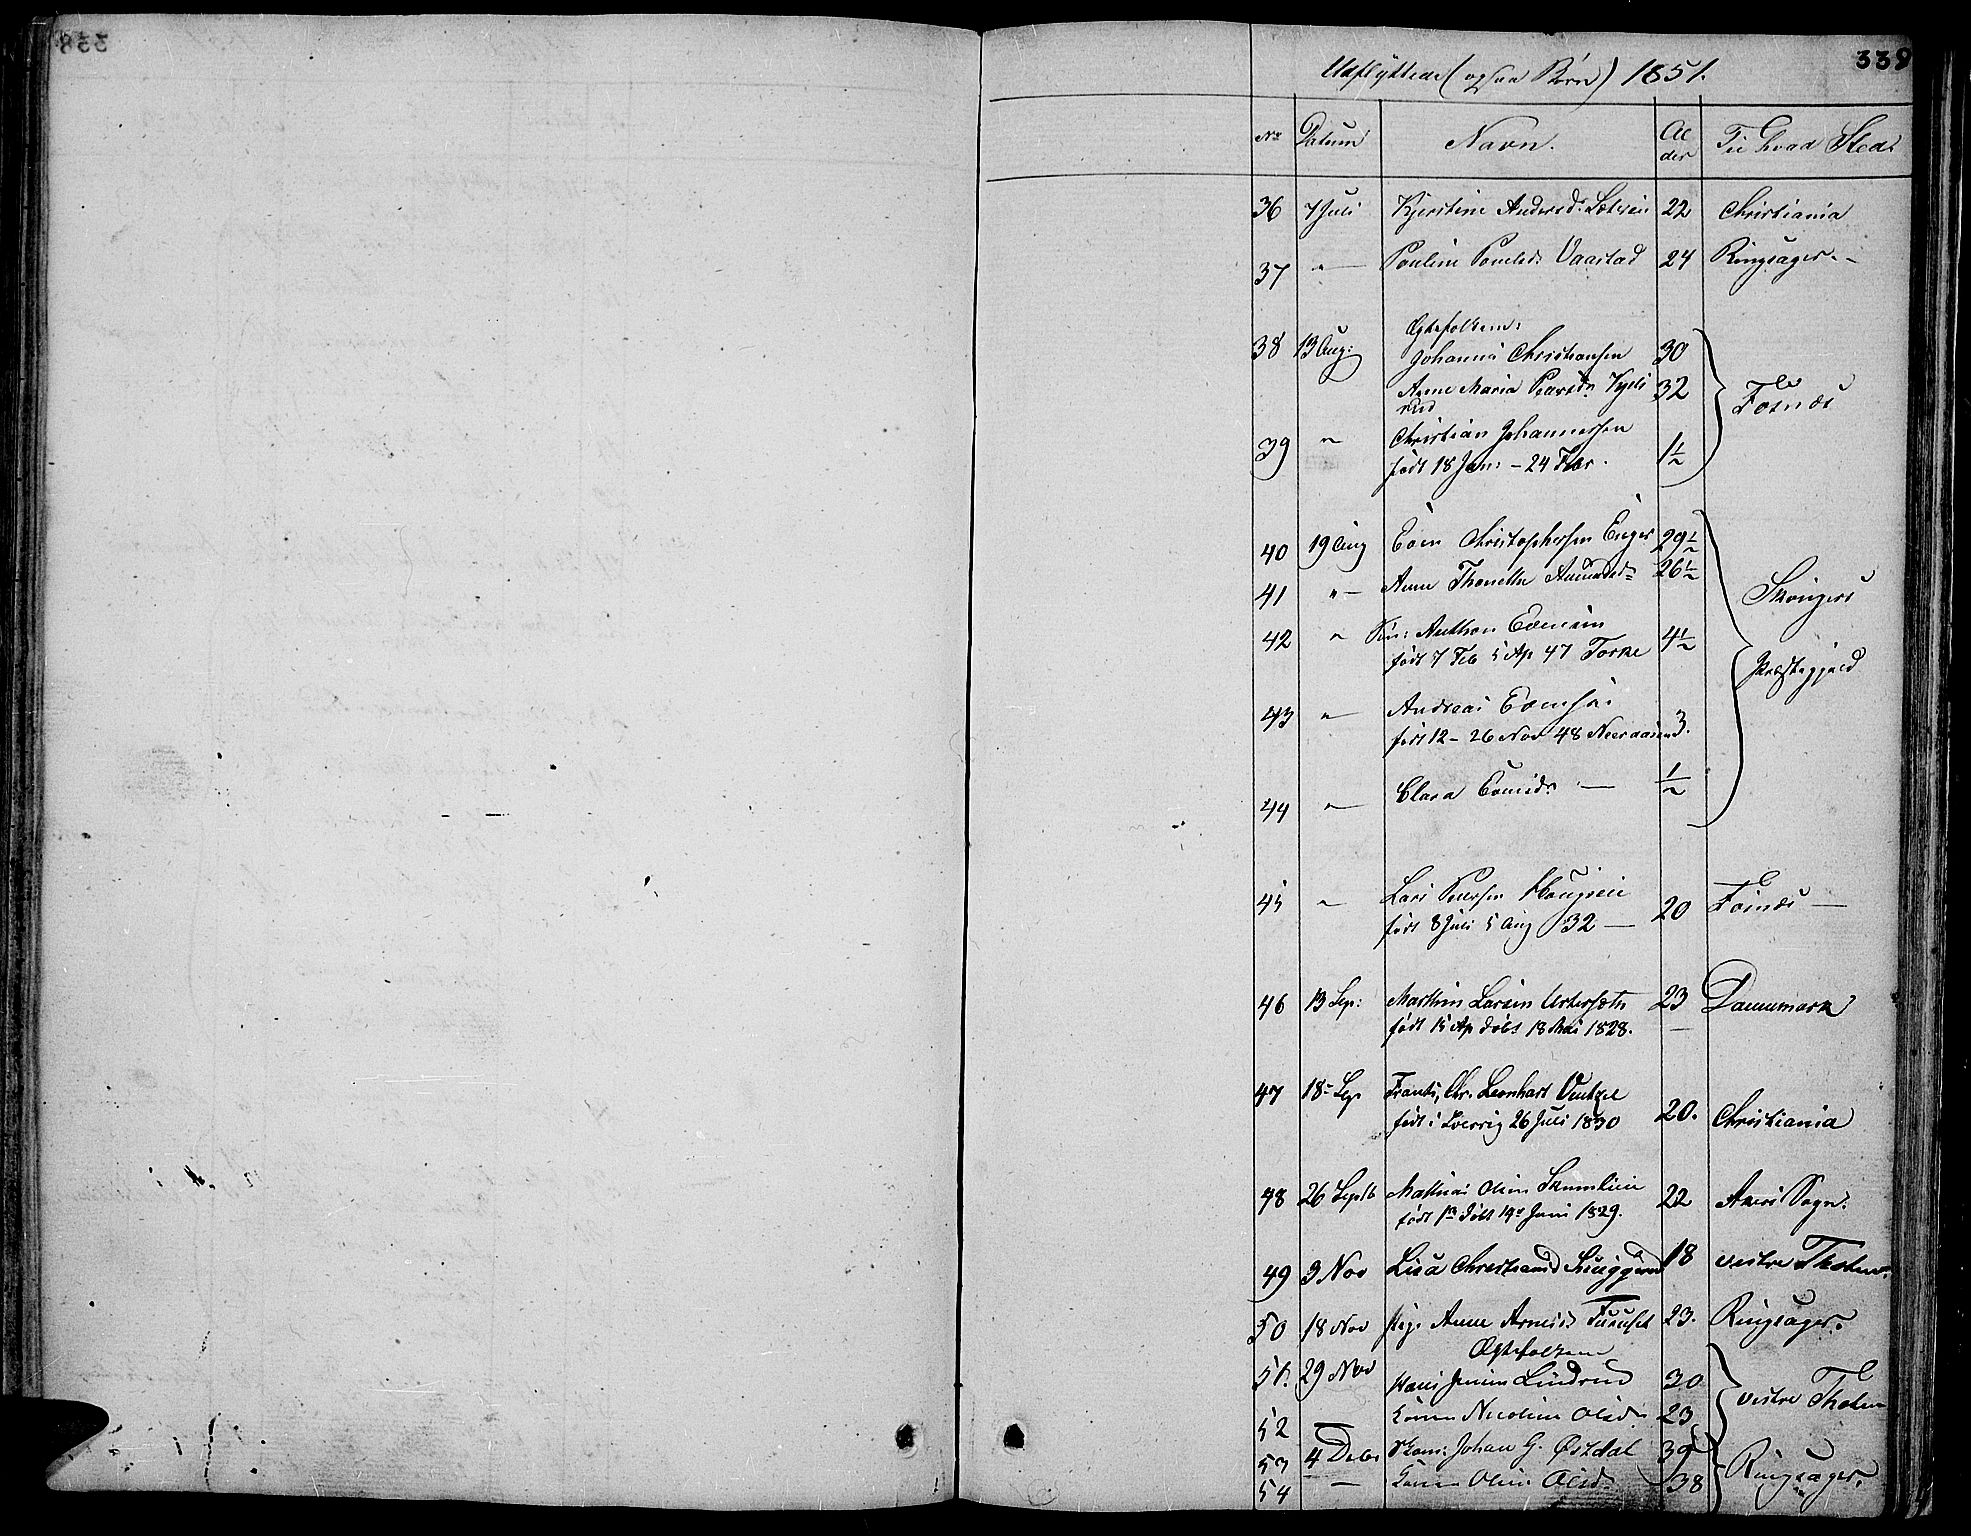 338
339
Udflyttede (ogsaa Børn) 1851.
No Datum Navn. Al der Til hvad Sted
36 7 Juli Kjerstine Andersd. 22 Christiania
37 " — Pouline Poulsd. Vaastad 24 Ringsager. -
Ægtefolkene:
38 13 Aug: Johannes Christiansen 30
Anne Maria 32
rud
Fosnæs
39 " Christian Johannessen
født 18 Jan: - 24 Febr. 1½
40 19 Aug Even Christophersen Enger 29½
41 " — Anne Thonette Amundsd. 26½
Præstegjeld
42 " Søn: Anthon Evensen
født 7 Feb 5 Ap 47 4½
43 " — Andreas Evensen
født 12 - 26 Nov 48 3.
44 " — Clara Evensd. — ½
45 " Lars Pedersen
født 8 Juli 5 Aug 32 — 20 Fosnæs —
46 13 Sep: Marthin Larsen 23 Dannemark
født 15 Ap døbt 18 Mai 1828.
47 18 Sep Frants, Chr. Leonhart Ventzel
født i Sverrig 26 Juli 1830 20. Christiania
48 26 Septb Mathias Olsen Skumlien 22 Akers Sogn.
født 13 døbt 19 Juni 1829.
49 3 Nov Lisa Christiansd 18 vestre Thoten
50 18 Nov Pige Anne Arnesd. Furuset 23. Ringsager.
Ægtefolkene
51. 29 Nov Hans Jensen Lindrud 30
52 Konen Nicoline Olsd. 23 vestre Thoten
53 4 Debr Skom: Johan G. Østdal 39
54 — Konen Oline Olsd. 38 Ringsager.